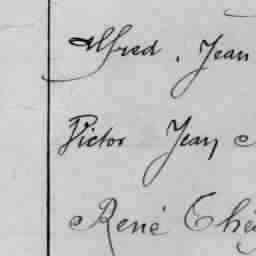 Alfred, Jean
Victor Jean
René